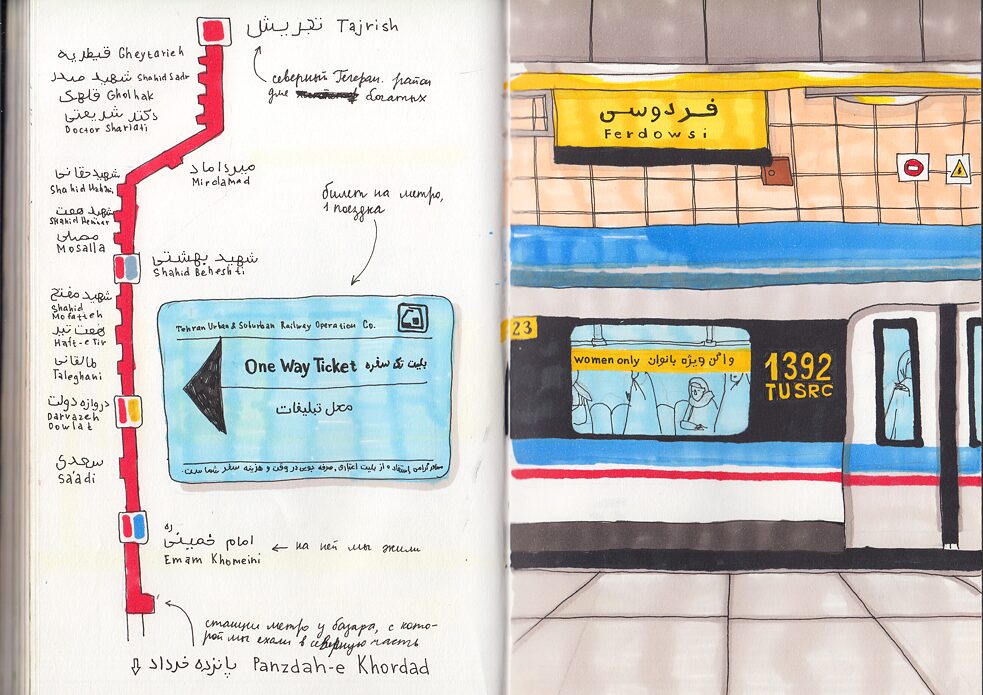 تجریش Tajrish
северный Тегеран. район
для богатых
قیطریه Gheytarieh
شهید صدر Shahid Sadr
قلهک
Gholhak
دکتر شریعتی
Doctor Shariati
میرداماد
Mirdamad
شهید حقانی
شهید همت
مصلی
Mosalla
شهید بهشتی
Shahid Beheshti
شهید مفتح
Shahid
Mofatteh
هفت تیر
Haft-e Tir
طالقانی
Taleghani
دروازه دولت
Darvazeh
Dowlat
سعدی
Sa'adi
ره
امام خمینی
Emam Khomeini
← на ней мы жили
станции метро у базара, с кото-
рой мы ехали в северную часть
⇩ پانزده خرداد Panzdah-e Khordad
билет на метро,
1 поездка
Tehran Urban & Suburban Railway Operation Co.
One Way Ticket بلیت تک سفره
محل تبلیغات
استفاده از بلیت اعتباری، صرفه جویی در وقت و هزینه سفر شما ست.
فردوسی
Ferdowsi
23
women only واگن ویژه بانوان
1392
TUSRC